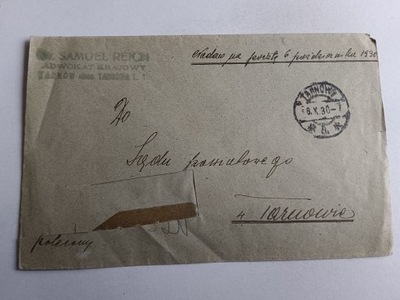 Dr. SAMUEL REICH
ADWOKAT KRAJOWY
TARNÓW
Nadano na pocztę 6 października 1930
TARNOWY
6.X.30-7
Do
Sądu powiatowego
w Tarnowie
polecony